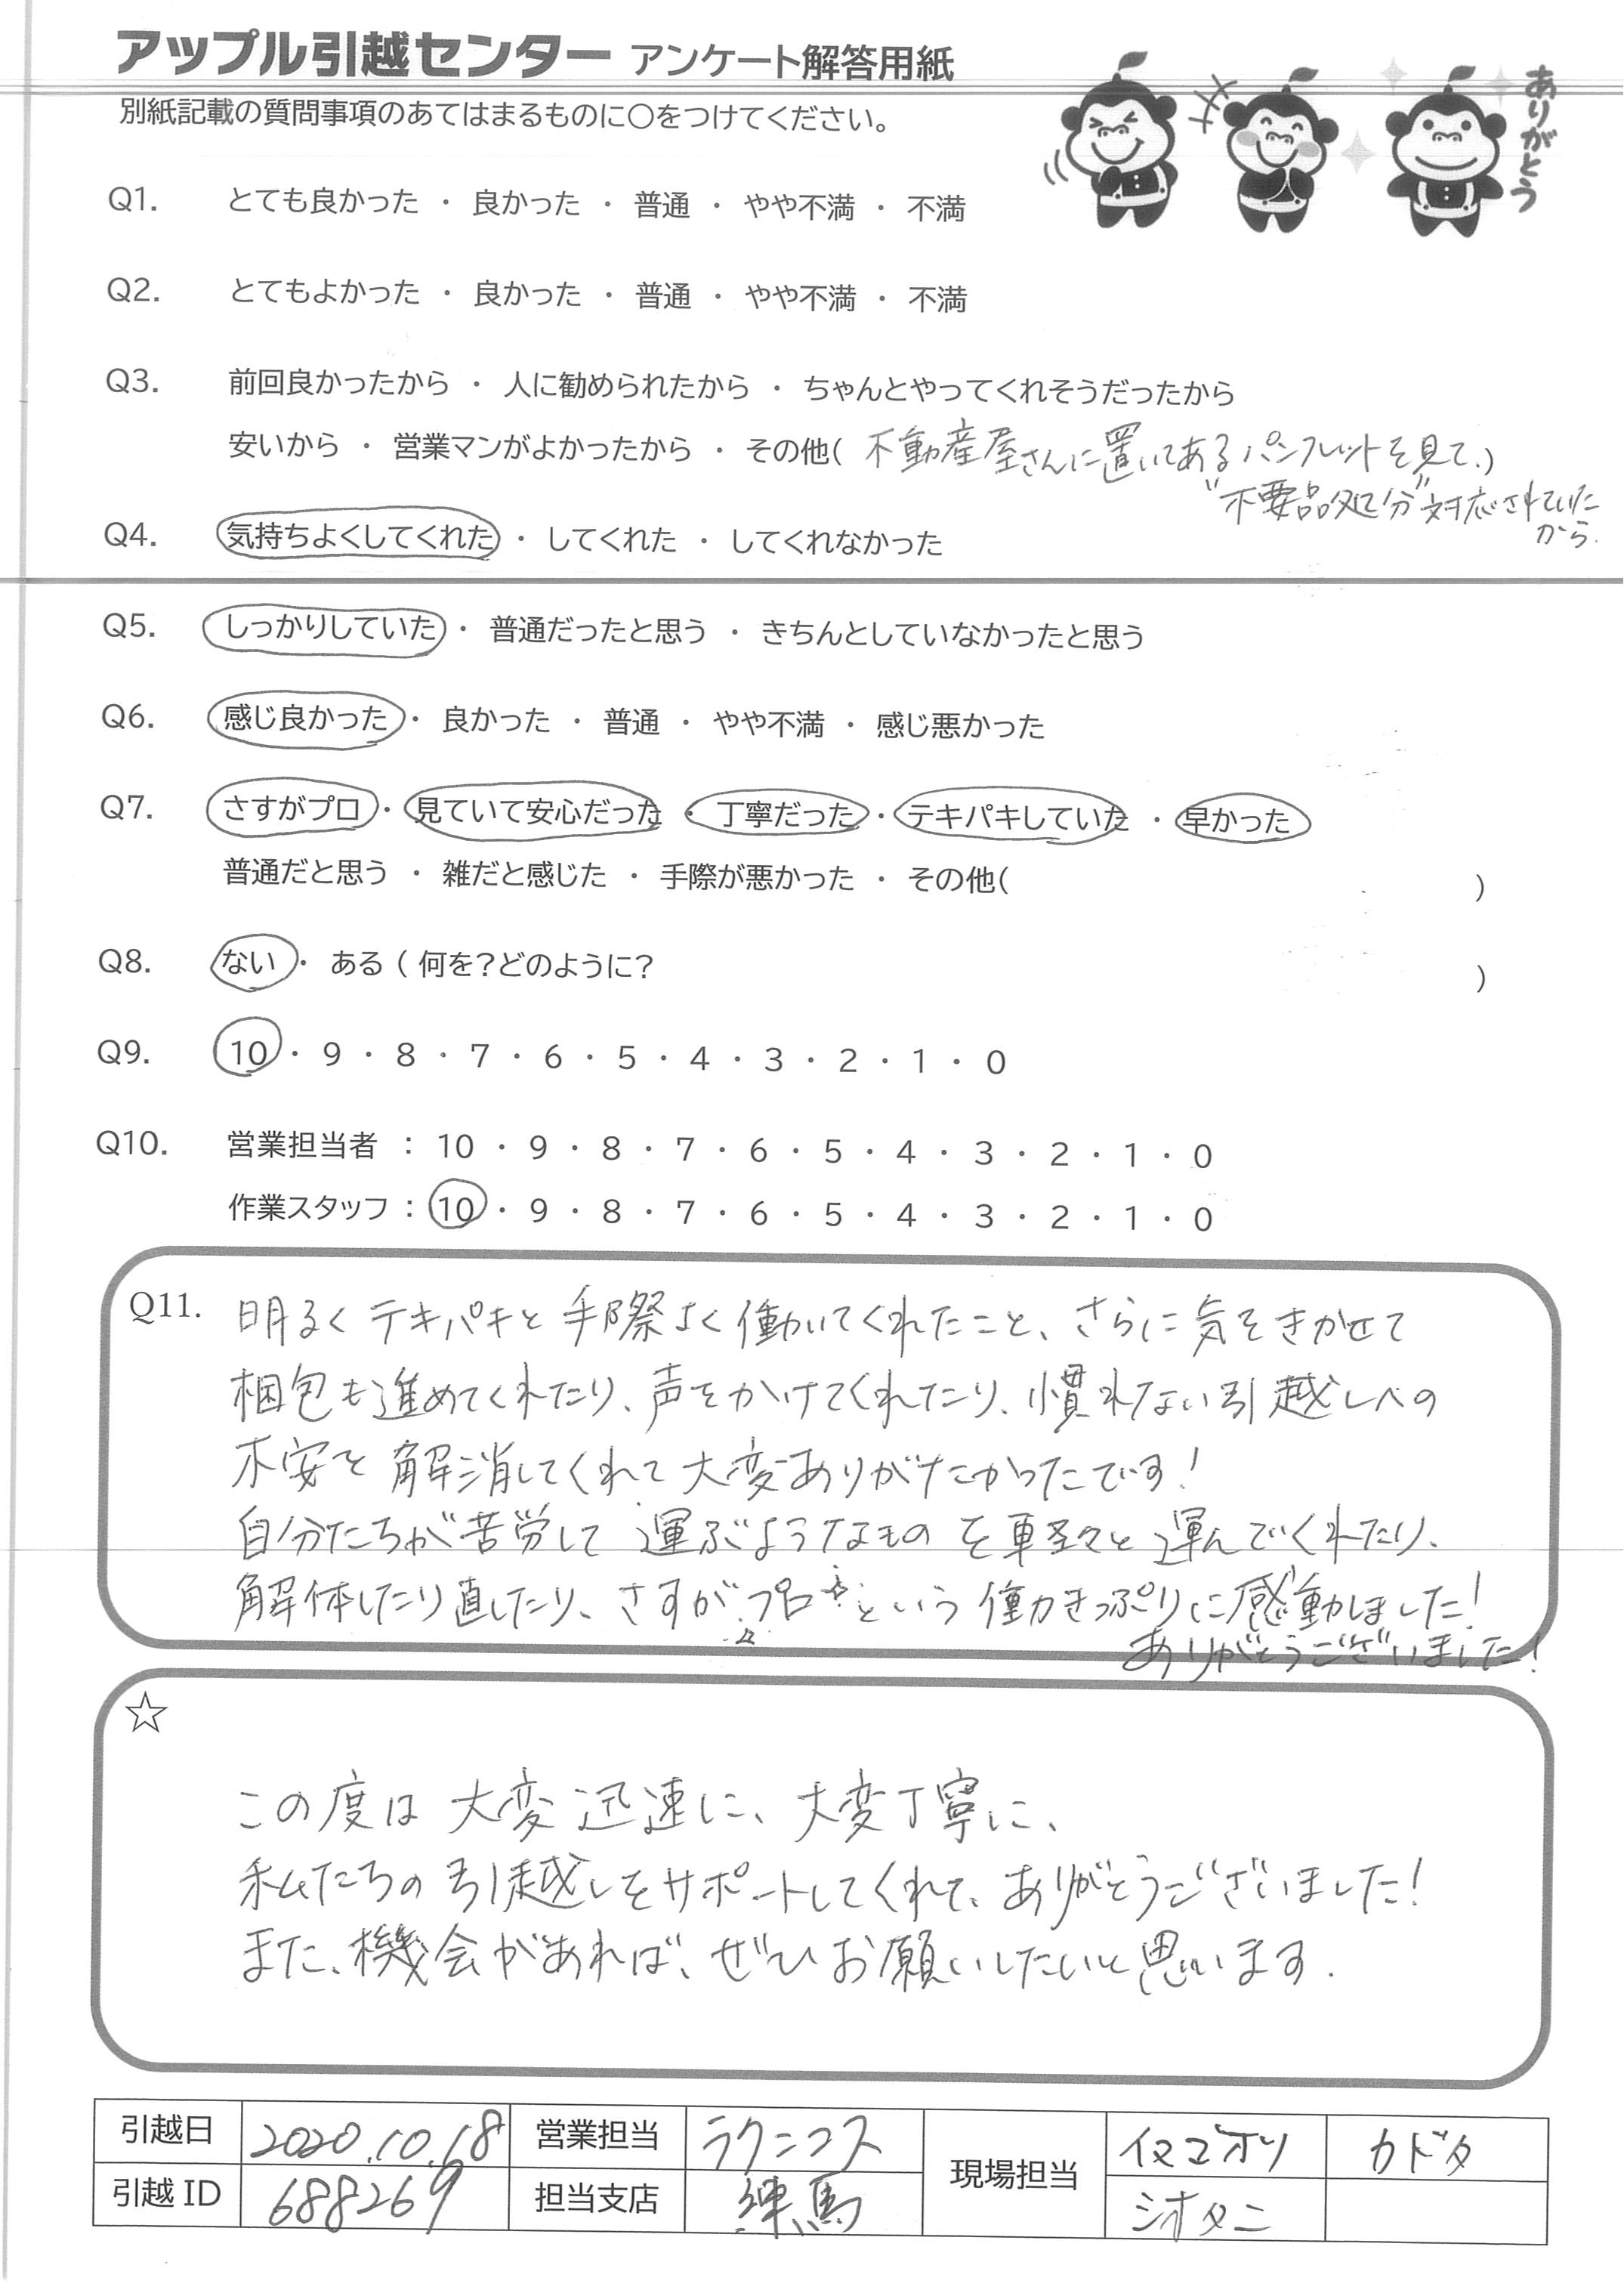 アップル引越センター アンケート解答用紙
別紙記載の質問事項のあてはまるものに〇をつけてください。
ありがとう
Q1. とても良かった ・ 良かった ・ 普通 ・ やや不満 ・ 不満
Q2. とてもよかった ・ 良かった ・ 普通 ・ やや不満 ・ 不満
Q3. 前回良かったから ・ 人に勧められたから ・ ちゃんとやってくれそうだったから
安いから ・ 営業マンがよかったから ・ その他( 不動産屋さんに置いてあるパンフレットを見て.)
"不要品処分"対応されていた
から.
Q4. 気持ちよくしてくれた ・ してくれた ・ してくれなかった
Q5. しっかりしていた ・ 普通だったと思う ・ きちんとしていなかったと思う
Q6. 感じ良かった ・ 良かった ・ 普通 ・ やや不満 ・ 感じ悪かった
Q7. さすがプロ ・ 見ていて安心だった ・ 丁寧だった ・ テキパキしていた ・ 早かった
普通だと思う ・ 雑だと感じた ・ 手際が悪かった ・ その他( )
Q8. ない ・ ある ( 何を?どのように? )
Q9. 10 ・ 9 ・ 8 ・ 7 ・ 6 ・ 5 ・ 4 ・ 3 ・ 2 ・ 1 ・ 0
Q10. 営業担当者 : 10 ・ 9 ・ 8 ・ 7 ・ 6 ・ 5 ・ 4 ・ 3 ・ 2 ・ 1 ・ 0
作業スタッフ : 10 ・ 9 ・ 8 ・ 7 ・ 6 ・ 5 ・ 4 ・ 3 ・ 2 ・ 1 ・ 0
Q11. 明るくテキパキと手際よく働いてくれたこと、さらに気をきかせて
梱包も進めてくれたり、声をかけてくれたり、慣れない引越しへの
不安を解消してくれて大変ありがたかったです!
自分たちが苦労して運ぶようなものを軽々と運んでくれたり、
解体したり直したり、さすがプロ☆という働きっぷりに感動しました!
ありがとうございました!
☆
この度は大変迅速に、大変丁寧に、
私たちの引越しをサポートしてくれて、ありがとうございました!
また、機会があれば、ぜひお願いしたいと思います.
引越日 2020.10.18 営業担当 ラクニコス 現場担当 イヌマオリ カドタ
引越ID 688269 担当支店 練馬 シオタニ